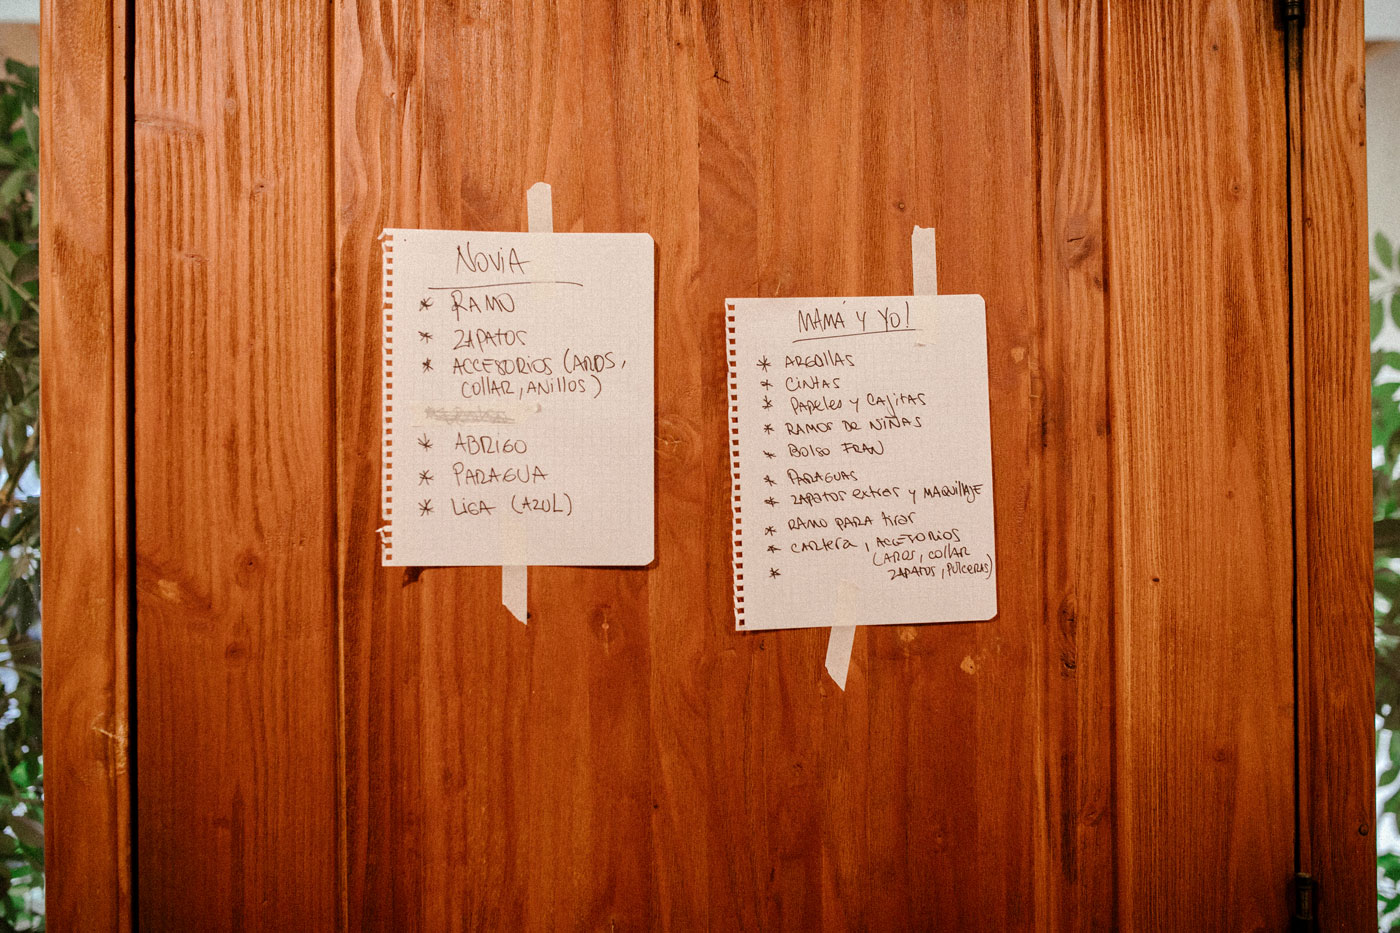 NOVIA
* RAMO
* ZAPATOS
* ACCESORIOS (AROS,
COLLAR, ANILLOS)
* ABRIGO
* PARAGUA
* LIGA (AZUL)
MAMÁ Y YO!
* ARGOLLAS
* CINTAS
* PAPELES Y CAJITAS
* RAMOS DE NIÑAS
* BOLSO FRAN
* PARAGUAS
* ZAPATOS EXTRES Y MAQUILLAJE
* RAMO PARA TIRAR
* CARTERA, ACCESORIOS
(AROS, COLLAR
* ZAPATOS, PULCERAS)